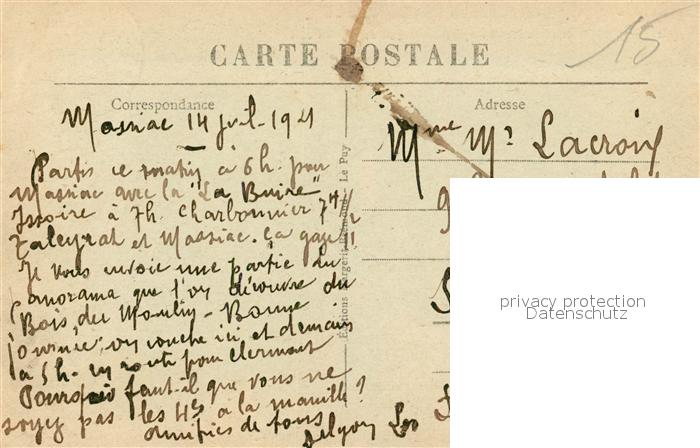 15
CARTE POSTALE
Correspondance
Adresse
Massiac 14 juil. 1921
Partis ce matin à 6h. pour
Massiac avec la "La Buire"
Issoire à 7h. Charbonnier 7h½
Taleyrat et Massiac. ça gaze!!
Je vous envoie une partie du
panorama que l'on découvre du
Bois du Moulin - Bonne
journée, on couche ici et demain
à 5h. en route pour Clermont
Pourquoi faut-il que vous ne
soyez pas les 4 à la manille?
Amitiés de tous
Mme Mr Lacroix
Éditions Margerit-Brémond - Le Puy
privacy protection
Datenschutz